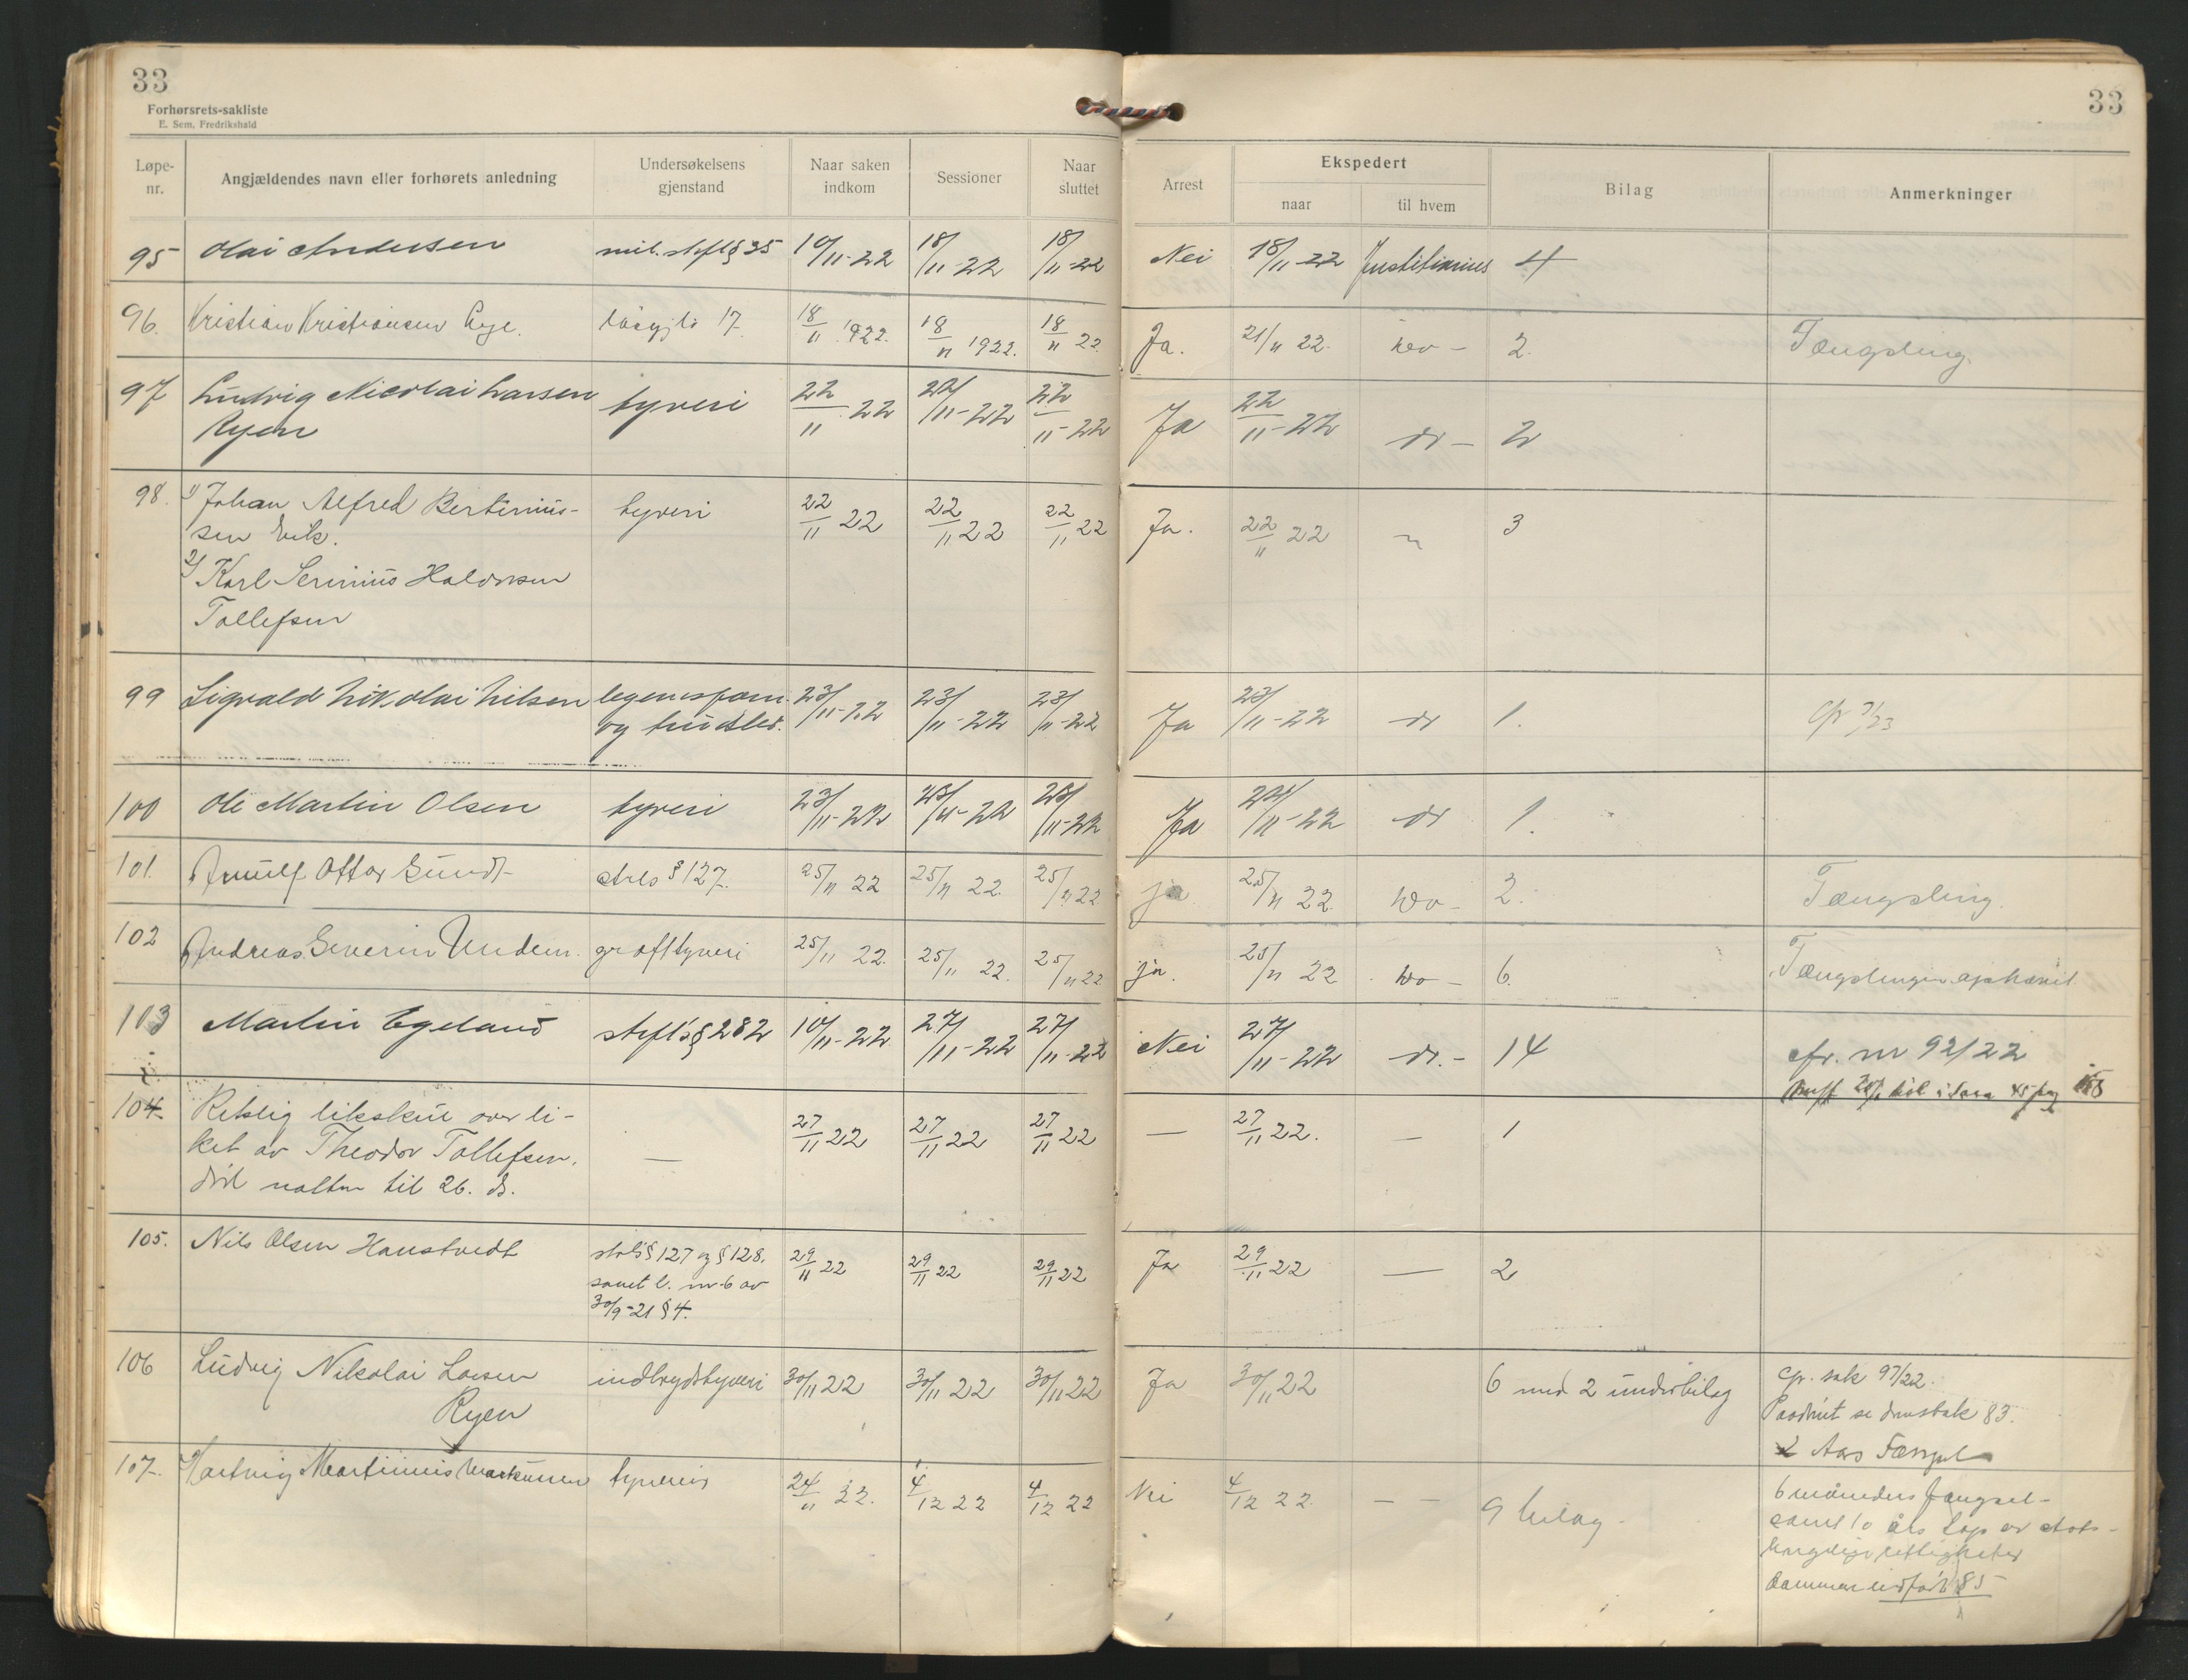 33
Forhørsrets-sakliste
E. Sem, Fredrikshald
33
Løpe-nr. Angjældendes navn eller forhørets anledning Undersøkelsens gjenstand Naar saken indkom Sessioner Naar sluttet Arrest Ekspedert naar til hvem Bilag Anmerkninger
95 Olai Andersen mil. strfl § 35 10/11-22 18/11-22 18/11-22 Nei 18/11-22 Justitiarius 4
96. Kristian Kristiansen 17 18/11 1922. 18/11 1922. 18/11 22 Ja. 21/11 22. 2. Fængsling.
97 Ludvig Nicolai Larsen tyveri 22/11 22 22/11-22 Ja 22/11-22 do - 2
Ryen
98. 1) Johan Alfred Bertinius- tyveri 22/11 22 22/11 22 22/11 22 Ja. 22/11 22 " 3
sen Vik.
2) Karl Serinius Haldorsen
Tollefsen
99 Sigvald Nikolai Nilsen legemsforn. 23/11-22 23/11-22 23/11-22 Ja 23/11-22 do 1. cfr 7/23
og husbes.
100 Ole Martin Olsen tyveri 23/11-22 25/11-22 25/11-22 Ja 11-22 do 1.
101. Arnulf Ottar Gundt § 127. 25/11 22 25/11 22. 25/11 22 ja 25/11 22 do - 2. Fængsling.
102 Andreas Severin Undem. grovt tyveri 25/11 22. 25/11 22. 25/11 22 ja. 25/11 22 do - 6. Fængslingen ophævet.
103 Martin Egeland strfl's § 282 10/11-22 27/11-22 27/11-22 Nei 27/11-22 do. - 14 cfr. nr 92/22
104 Retslig likskue over li- — 27/11 22 27/11 22 27/11 22 — 27/11 22. — 1
ket av Theodor Tollefsen,
død natten til 26. ds.
105. Nils Olsen Haustvedt strls § 127 og § 128. 29/11 22 29/11 22 29/11 22 Ja 29/11 22 — 2
samt l. nr 6 av
30/9-21 § 4.
106 Ludvig Nikolai Larsen indbrudstyveri 30/11 22 30/11 22 30/11 22 Ja 30/11 22 6 med 2 underbilag cfr. sak 97/22.
Ryen Paadømt se domsbok 83.
2 Aars Fængsel
107. Hartvig Martinius Markussen tyveri 24/11 22. 4/12 22 4/12 22 Nei 4/12 22. — — 9 bilag - 6 måneders fængsel -
samt 10 års tap av stats-
borgerlige rettigheter
85